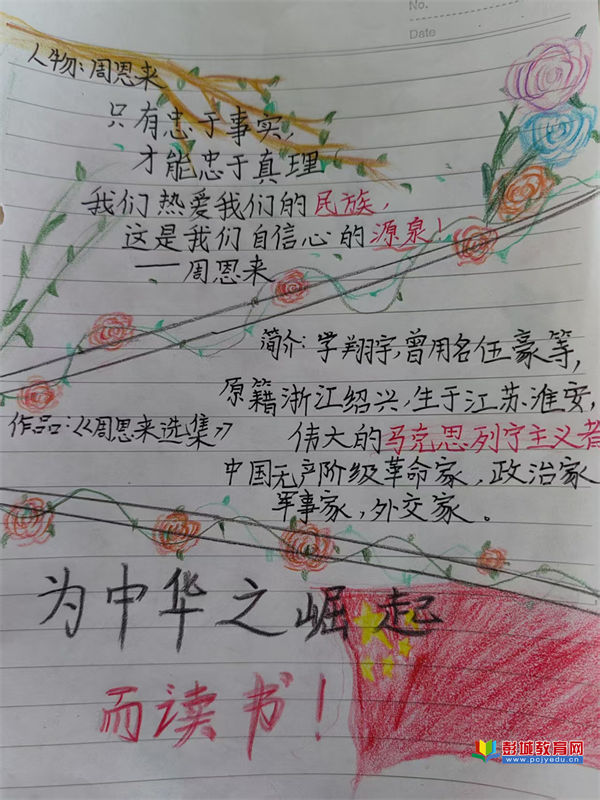 No.
Date
人物:周恩来
只有忠于事实,
才能忠于真理
我们热爱我们的民族,
这是我们自信心的源泉!
——周恩来
简介:学翔宇,曾用名伍豪等,
原籍浙江绍兴,生于江苏淮安,
作品:《周恩来选集》
伟大的马克思列宁主义者
中国无产阶级革命家,政治家
军事家,外交家。
为中华之崛起
而读书!
彭城教育网
www.pcjyedu.cn